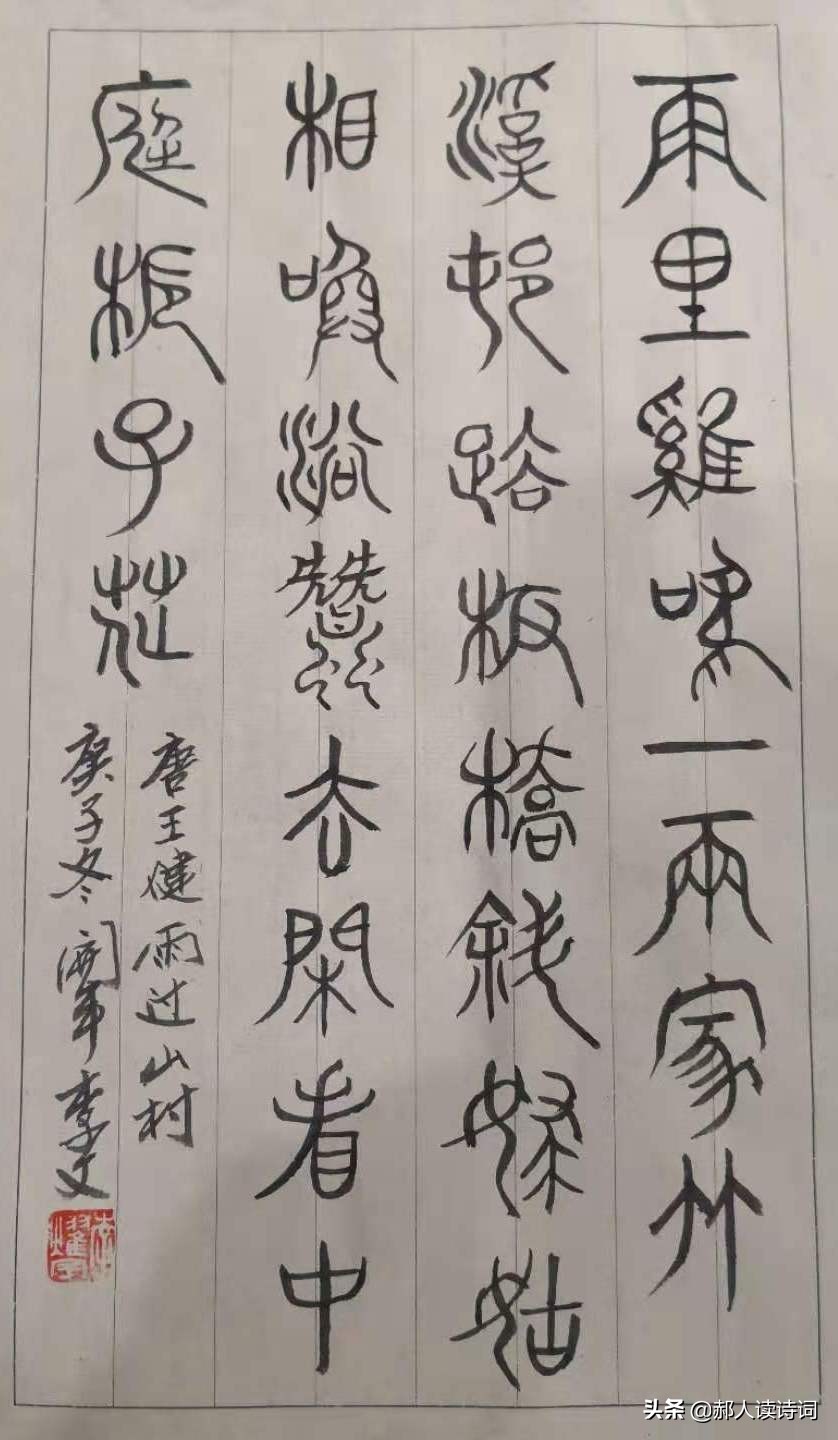 雨里雞鳴一兩家竹
溪邨路板橋斜婦姑
相喚浴蠶去閑看中
庭梔子花
唐王健雨过山村
庚子冬 李文
头条 @郝人读诗词